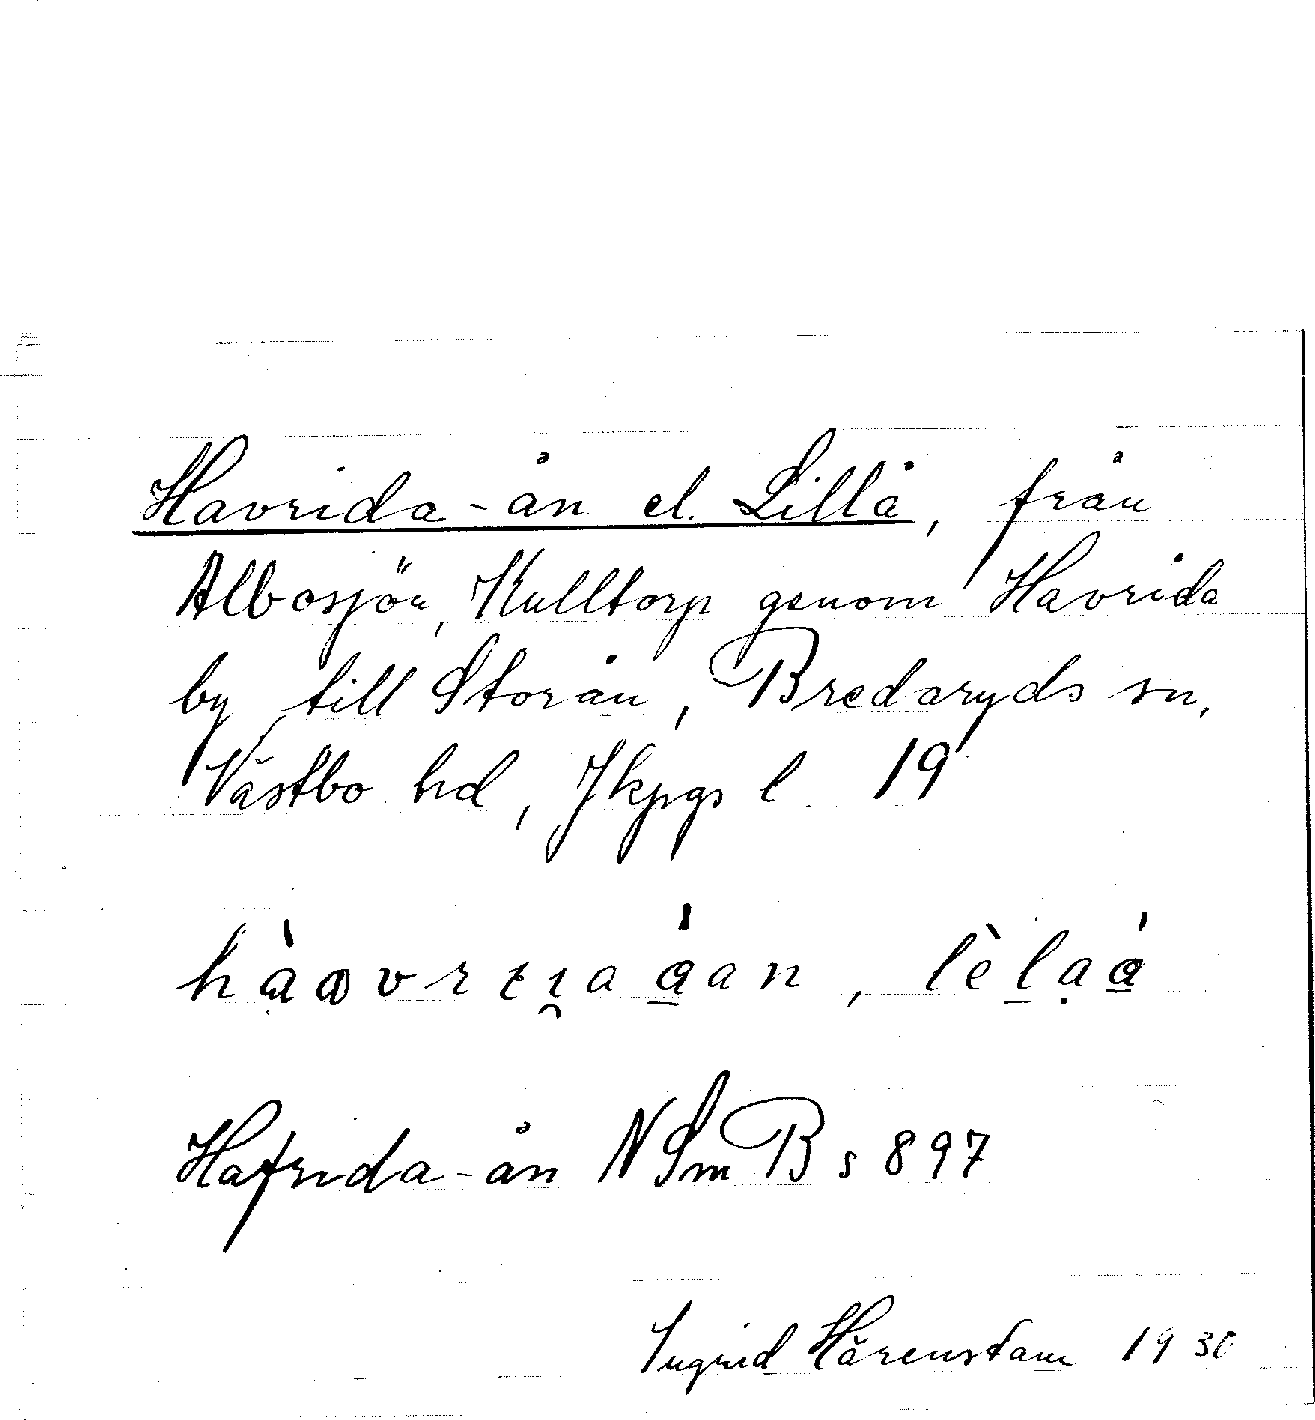 Havrida-ån el. Lillå, från
Albosjön, Kulltorp genom Havrida
by till Storån, Bredaryds sn,
Västbo hd, Jkpgs l. 19
Hafrida-ån NSmB s 897
Ingrid Härenstam 1930